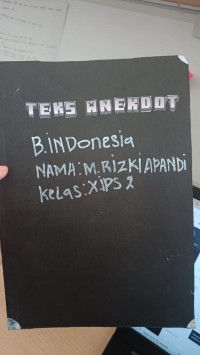 TEKS ANEKDOT
B.INDonesia
NAMA:M.RIZKI APANDI
Kelas:X.IPS 2